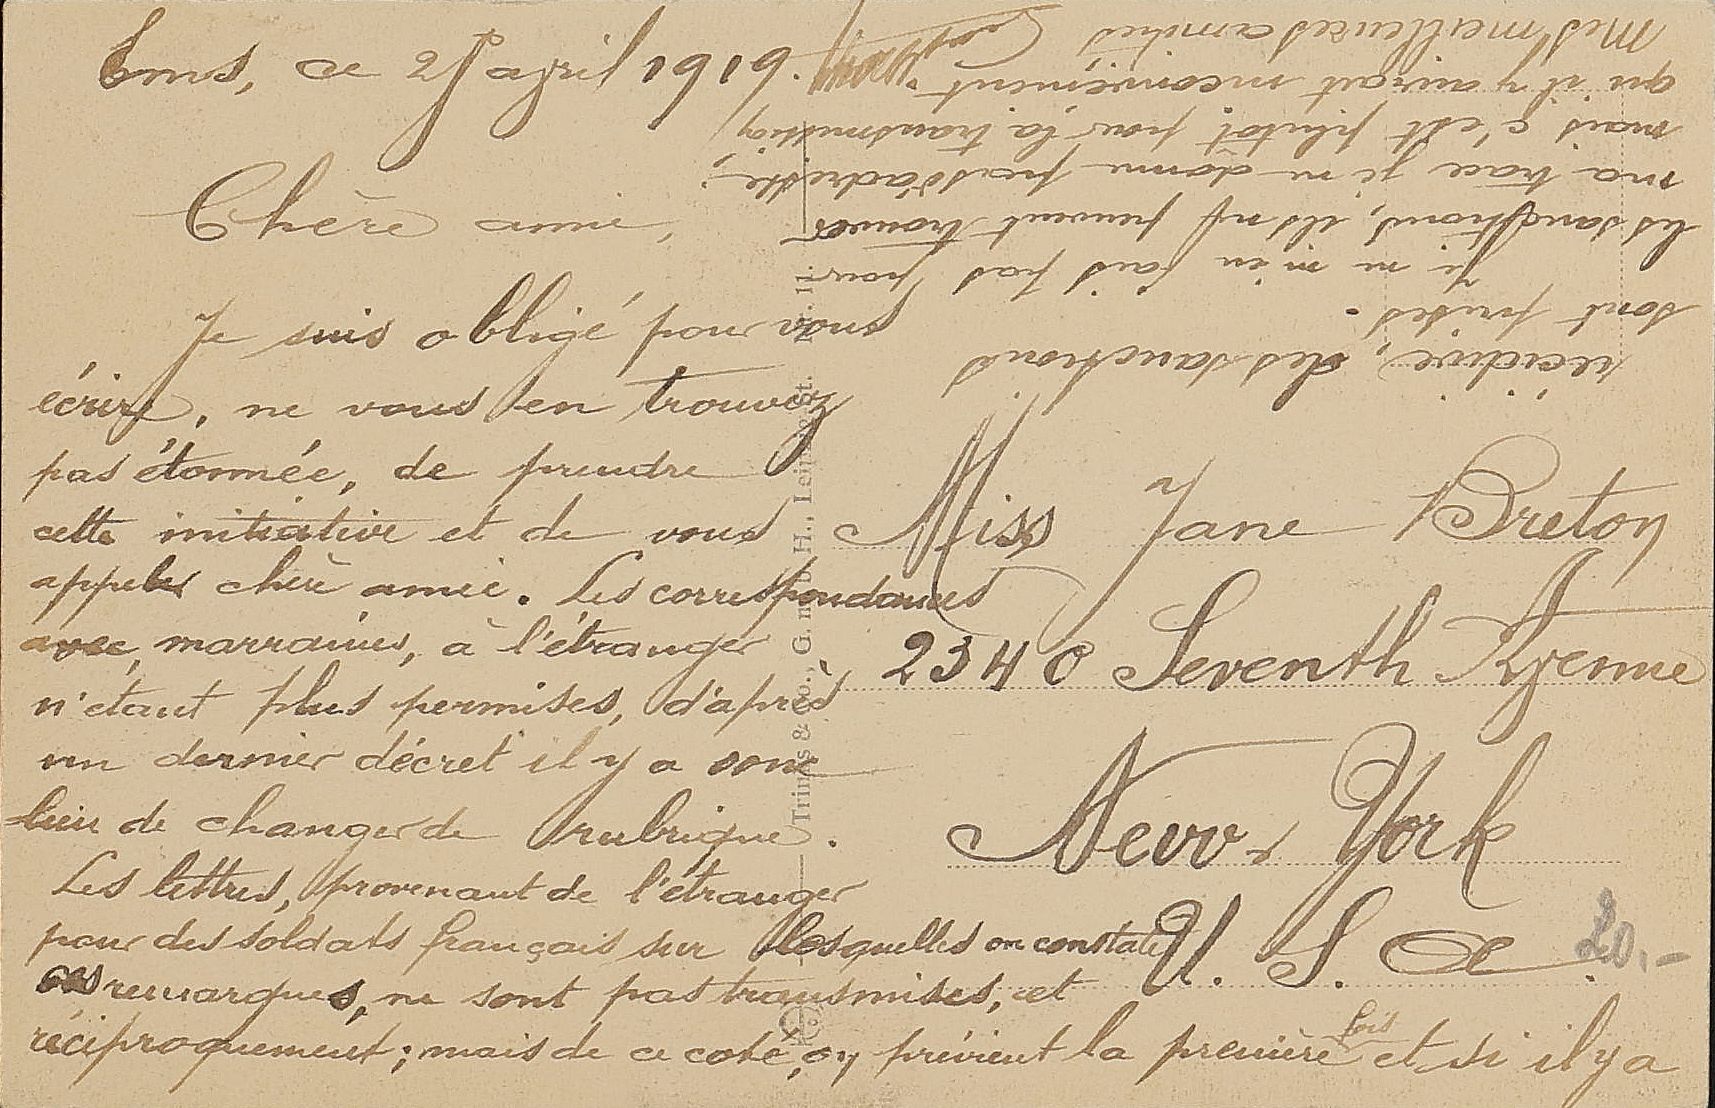 Ems, ce 27 avril 1916.
Chère amie,
Je suis obligé pour vous
écrire, ne vous en trouvez
pas étonnée, de prendre
cette initiative et de vous
appeler chère amie. Les correspondances
avec marraines, à l'étranger
n'étant plus permises, d'après
un dernier décret il y a donc
lieu de changer de rubrique.
Les lettres, provenant de l'étranger
pour des soldats français sur lesquelles on constate
ces remarques, ne sont pas transmises, et
réciproquement; mais de ce coté, on prévient la première fois et si il y a
récidive, des sanctions
sont prises.
Je ne m'en fais pas pour
les sanctions, ils ne peuvent trouver
ma trace je ne donne pas d'adresse,
mais c'est plutôt pour la transmission
qu'il y aurait inconvénient.
Mes meilleures amitiés
Miss Jane Breton
2340 Seventh Avenue
New-York
U. S. A.
20.-
Trinks & Co., G. m. b. H., Leipzig